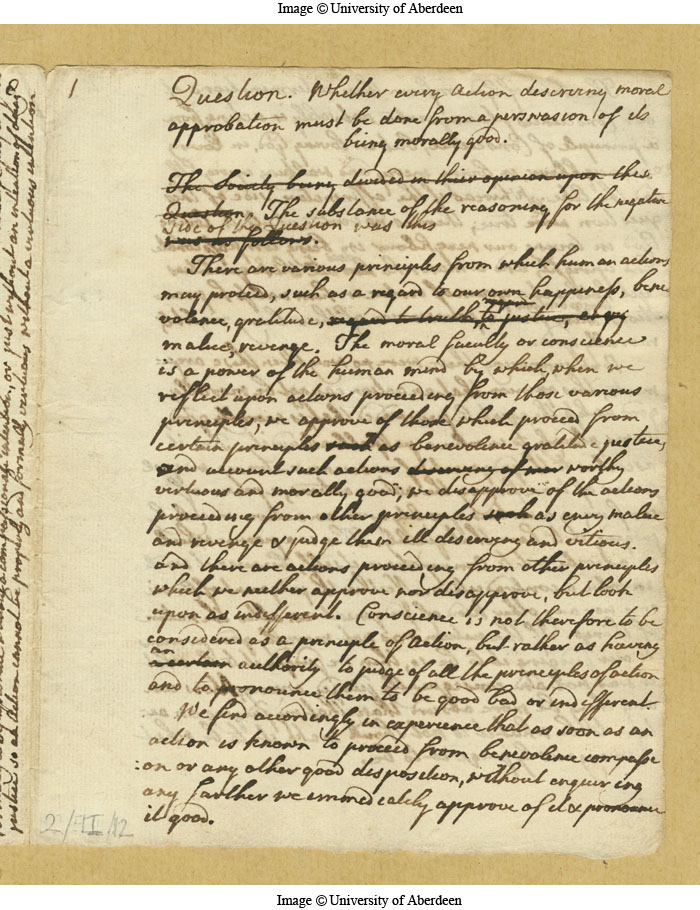 Image © University of Aberdeen
1
Question. Whether every Action deserving moral
approbation must be done from a perswasion of its
being morally good.
The Society being divided in their opinion upon this
Question. The substance of the reasoning for the negative
Side of the Question was this
was as follows.
There are various principles from which human actions
may proceed, such as a regard to our own happiness, bene
volence, gratitude, regard to truth to justice, envy
malice, revenge. The moral faculty or conscience
is a power of the human mind by which, when we
reflect upon actions proceeding from those various
principles, we approve of those which proceed from
certain principles such as benevolence gratitude justice,
and account such actions deserving of mor worthy
virtuous and morally good; we disapprove of the actions
proceeding from other principles such as envy, malice
and revenge & judge them ill deserving and vitious.
and there are actions proceeding from other principles
which we neither approve nor disapprove, but look
upon as indifferent. Conscience is not therefore to be
considered as a principle of Action, but rather as having
an
a certain authority to judge of all the principles of action
and to pronounce them to be good bad or indifferent.
We find accordingly in experience that as soon as an
action is known to proceed from benevolence compassi
:on or any other good disposition, without enquiring
any farther we immediately approve of it & pronounce
it good.
2/II/12
justice so an Action cannot be properly and formally virtuous without a virtuous intention
Image © University of Aberdeen